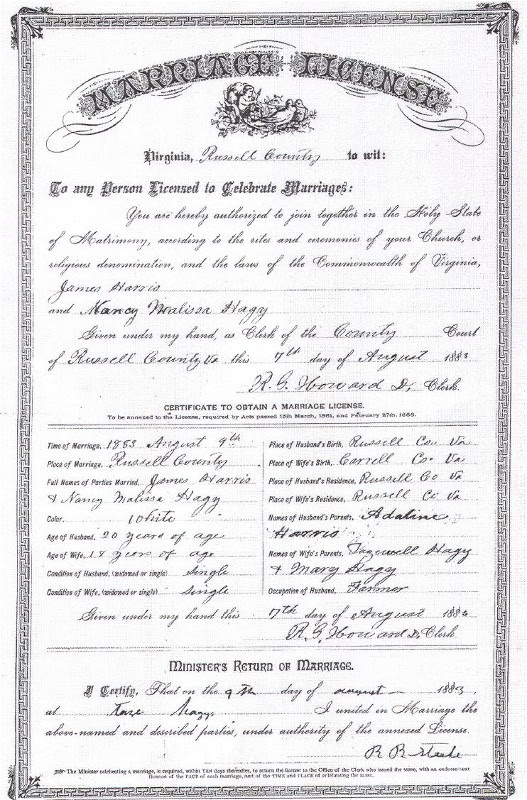 MARRIAGE LICENSE
Virginia, Russell County to wit:
To any Person Licensed to Celebrate Marriages:
You are hereby authorized to join together in the Holy State
of Matrimony, according to the rites and ceremonies of your Church, or
religious denomination, and the laws of the Commonwealth of Virginia,
James Harris
and Nancy Malissa Hagy
Given under my hand, as Clerk of the County Court
of Russell County Va this 7th day of August 1883
R. G. Howard D. Clerk.
CERTIFICATE TO OBTAIN A MARRIAGE LICENSE.
To be annexed to the License, required by Acts passed 15th March, 1861, and February 27th, 1866.
Time of Marriage, 1883 August 9th
Place of Marriage, Russell County
Full Names of Parties Married, James Harris
& Nancy Malissa Hagy
Color, White
Age of Husband, 20 years of age
Age of Wife, 18 years of age
Condition of Husband, (widowed or single) Single
Condition of Wife, (widowed or single) Single
Place of Husband's Birth, Russell Co. Va
Place of Wife's Birth, Carroll Co. Va
Place of Husband's Residence, Russell Co Va
Place of Wife's Residence, Russell Co Va
Names of Husband's Parents, Adaline
Harris
Names of Wife's Parents, Tazewell Hagy
& Mary Hagy
Occupation of Husband, Farmer
Given under my hand this 7th day of August 1883
R. G. Howard D. Clerk
MINISTER'S RETURN OF MARRIAGE.
I Certify, That on the 9th day of august 1883,
at Taze Hagys I united in Marriage the
above-named and described parties, under authority of the annexed License.
The Minister celebrating a marriage, is required, within TEN days thereafter, to return the license to the Office of the Clerk who issued the same, with an endorsement
thereon of the FACT of such marriage, and of the TIME and PLACE of celebrating the same.